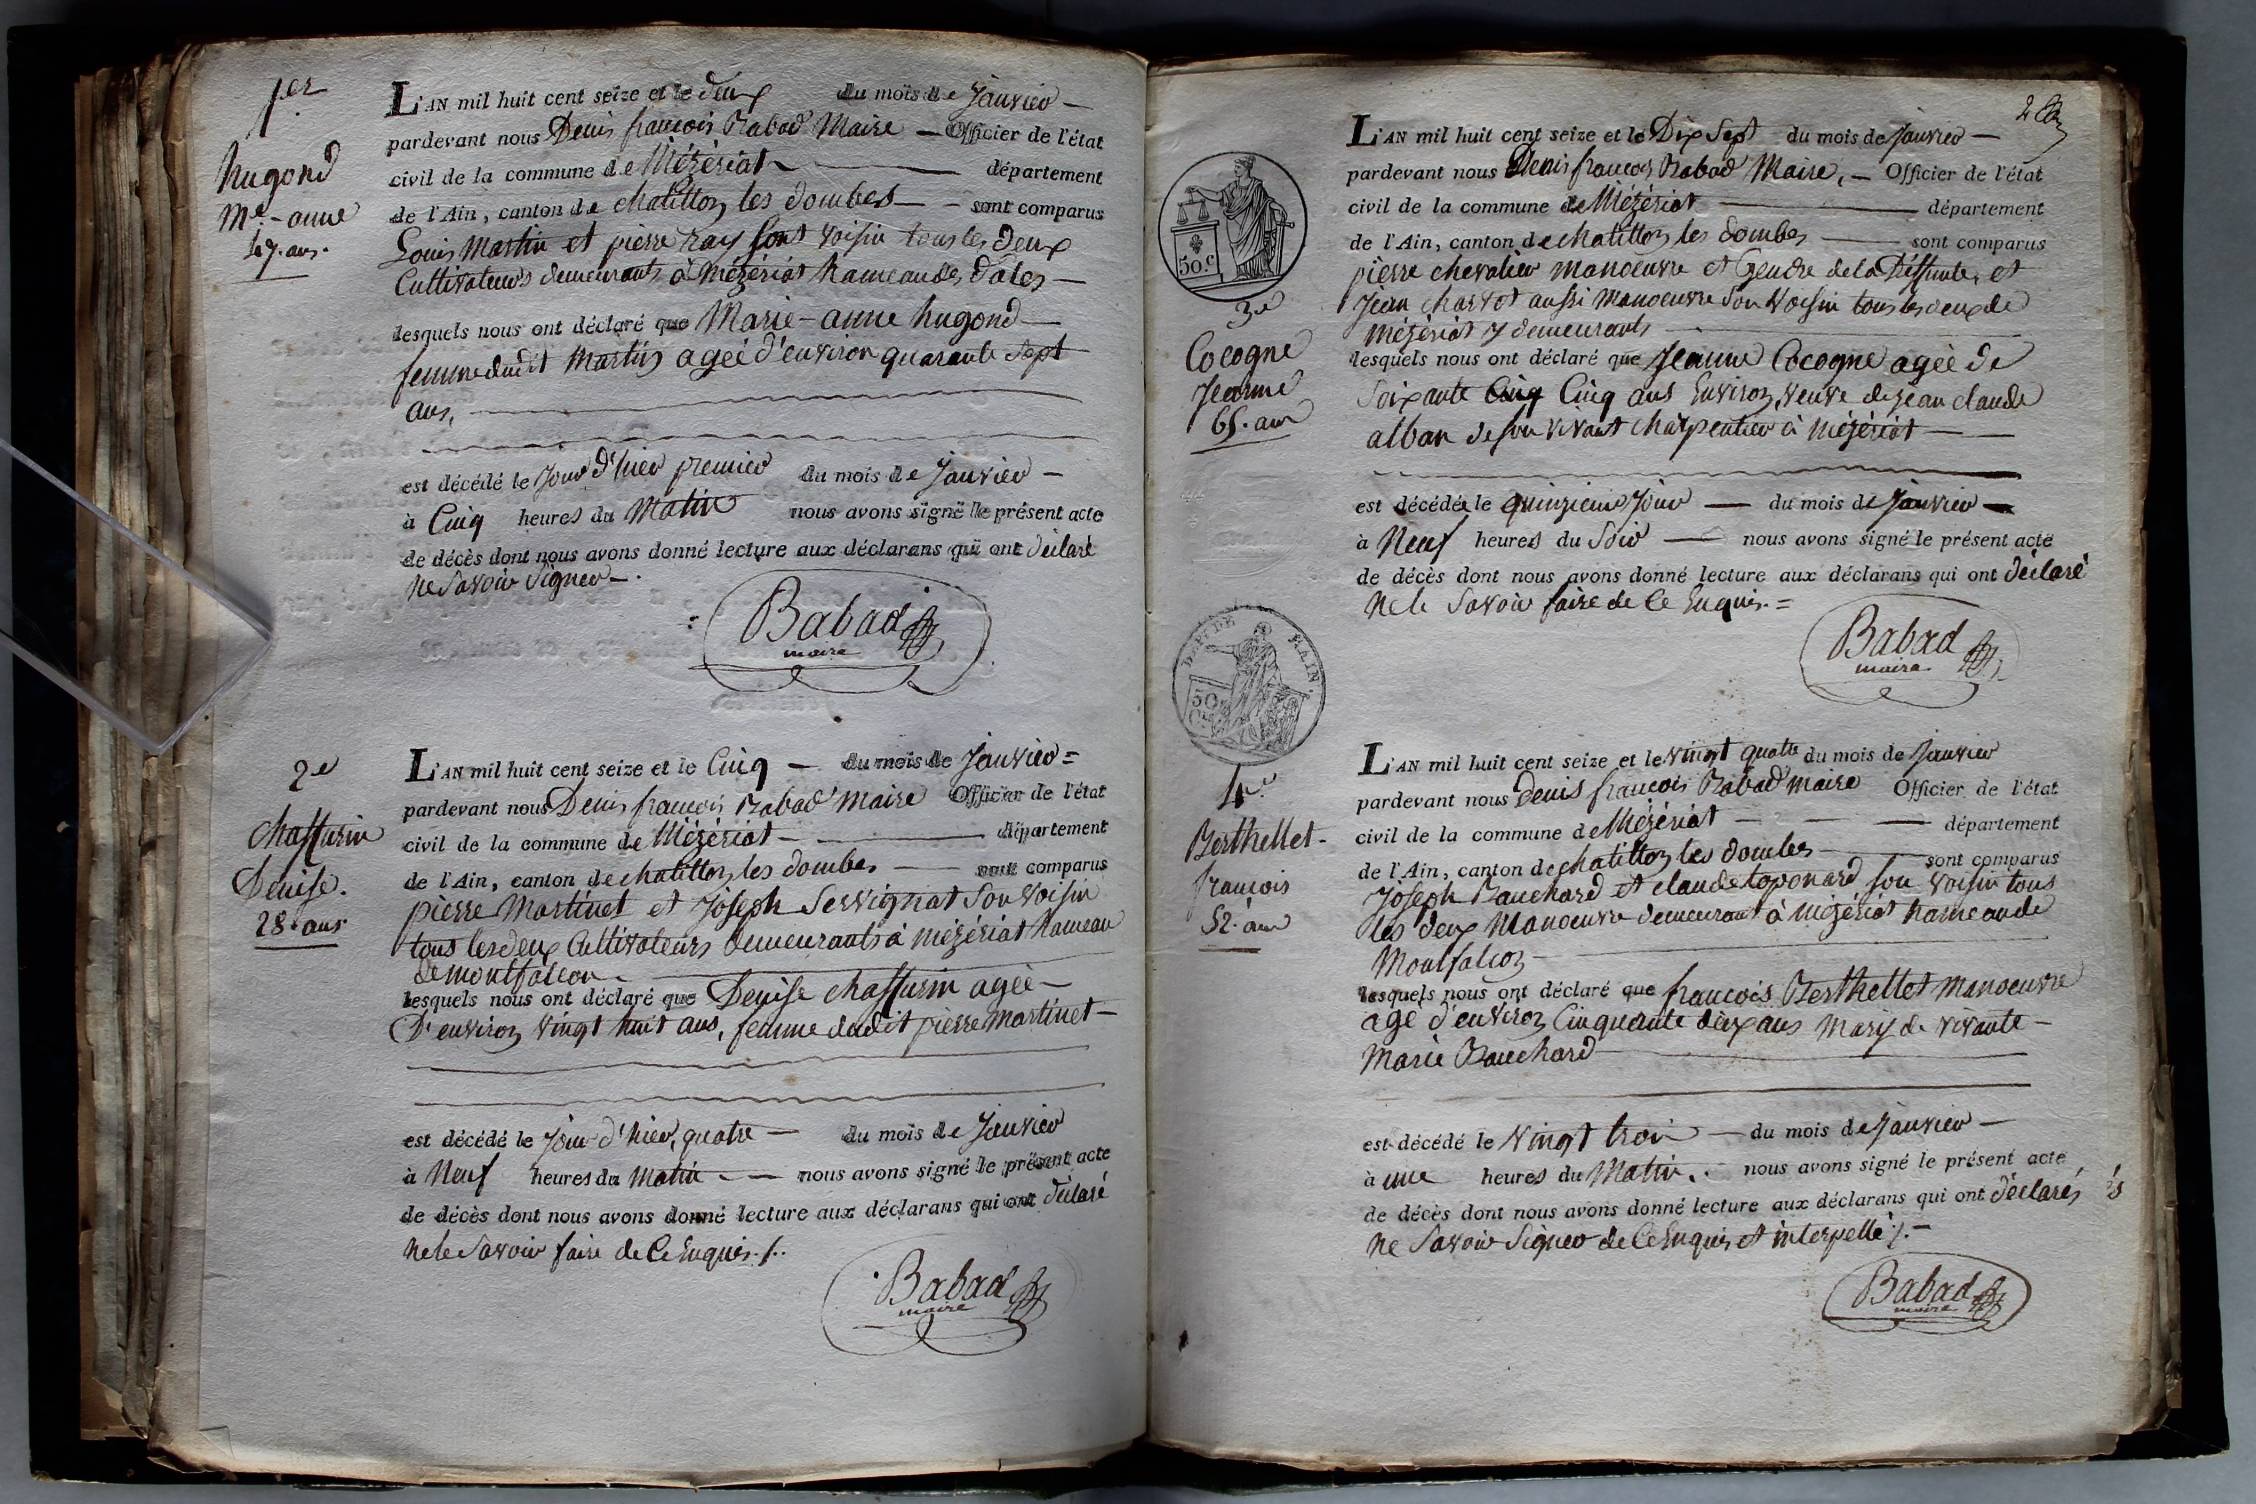 1er
Hugond
Me-anne
47. ans.
L'AN mil huit cent seize et le deux du mois de janvier —
pardevant nous Denis françois Babad Maire — Officier de l'état
civil de la commune de Mézériat — département
de l'Ain, canton de chatillon les dombes — sont comparus
Louis Martin et pierre ray son voisin tous les deux
Cultivateurs demeurants à Mézériat hameau des dales —
lesquels nous ont déclaré que Marie-anne hugond —
femme dudit Martin agéé d'environ quarante Sept
ans, —
est décédé le jour d'hier premier du mois de janvier —
à Cinq heures du Matin nous avons signé le présent acte
de décès dont nous avons donné lecture aux déclarans qui ont déclaré
ne Savoir Signer — .
Babad
maire
2e
Chaffurin
Denise.
28. ans
L'AN mil huit cent seize et le Cinq — du mois de janvier =
pardevant nous Denis françois Babad maire Officier de l'état
civil de la commune de Mézériat — département
de l'Ain, canton de chatillon les dombes — sont comparus
pierre Martinet et Joseph Servignat Son voisin
tous les deux Cultivateurs demeurants à mézériat hameau
de montfalcon —
lesquels nous ont déclaré que Denise chaffurin agéé —
D'environ vingt huit ans, femme dudit pierre Martinet —
est décédé le jour d'hier, quatre — du mois de janvier
à Neuf heures du matin — nous avons signé le présent acte
de décès dont nous avons donné lecture aux déclarans qui ont déclaré
ne le Savoir faire de Ce Enquis ./.
Babad
maire
2
L'AN mil huit cent seize et le Dix Sept du mois de janvier —
pardevant nous Denis françois Babad Maire, — Officier de l'état
civil de la commune de Mézériat — département
de l'Ain, canton de chatillon les dombes — sont comparus
50.c
pierre chevalier manoeuvre et Gendre de la Déffunte, et
3e
jean charvet aussi manoeuvre Son voisin tous les deux de
mézériat y demeurants —
Cocogne
Jeanne
65. ans
lesquels nous ont déclaré que Jeanne Cocogne agéé de
Soixante Cinq Cinq ans Environ, veuve de jean claude
alban de son vivant charpentier à mézériat —
est décédée le quinzieme jour — du mois de janvier —
à Neuf heures du Soir — nous avons signé le présent acte
de décès dont nous avons donné lecture aux déclarans qui ont déclaré
ne le Savoir faire de Ce Enquis. =
Babad
maire
DEPT DE L'AIN.
50
4e
Berthellet
françois
52. ans
L'AN mil huit cent seize et le vingt quatre du mois de janvier
pardevant nous Denis françois Babad maire Officier de l'état
civil de la commune de Mézériat — département
de l'Ain, canton de chatillon les dombes — sont comparus
Joseph Bauchard et claude toponard son voisin tous
les deux Manoeuvre demeurant à mézériat hameau de
Montfalcon —
lesquels nous ont déclaré que françois Berthellet manoeuvre
agé d'environ Cinquante deux ans Mary de vivante —
Marie Bauchard —
est décédé le vingt trois — du mois de janvier —
à une heures du Matin. nous avons signé le présent acte
de décès dont nous avons donné lecture aux déclarans qui ont déclarés
ne Savoir Signer de Ce Enquis et interpellé ./. —
Babad
maire